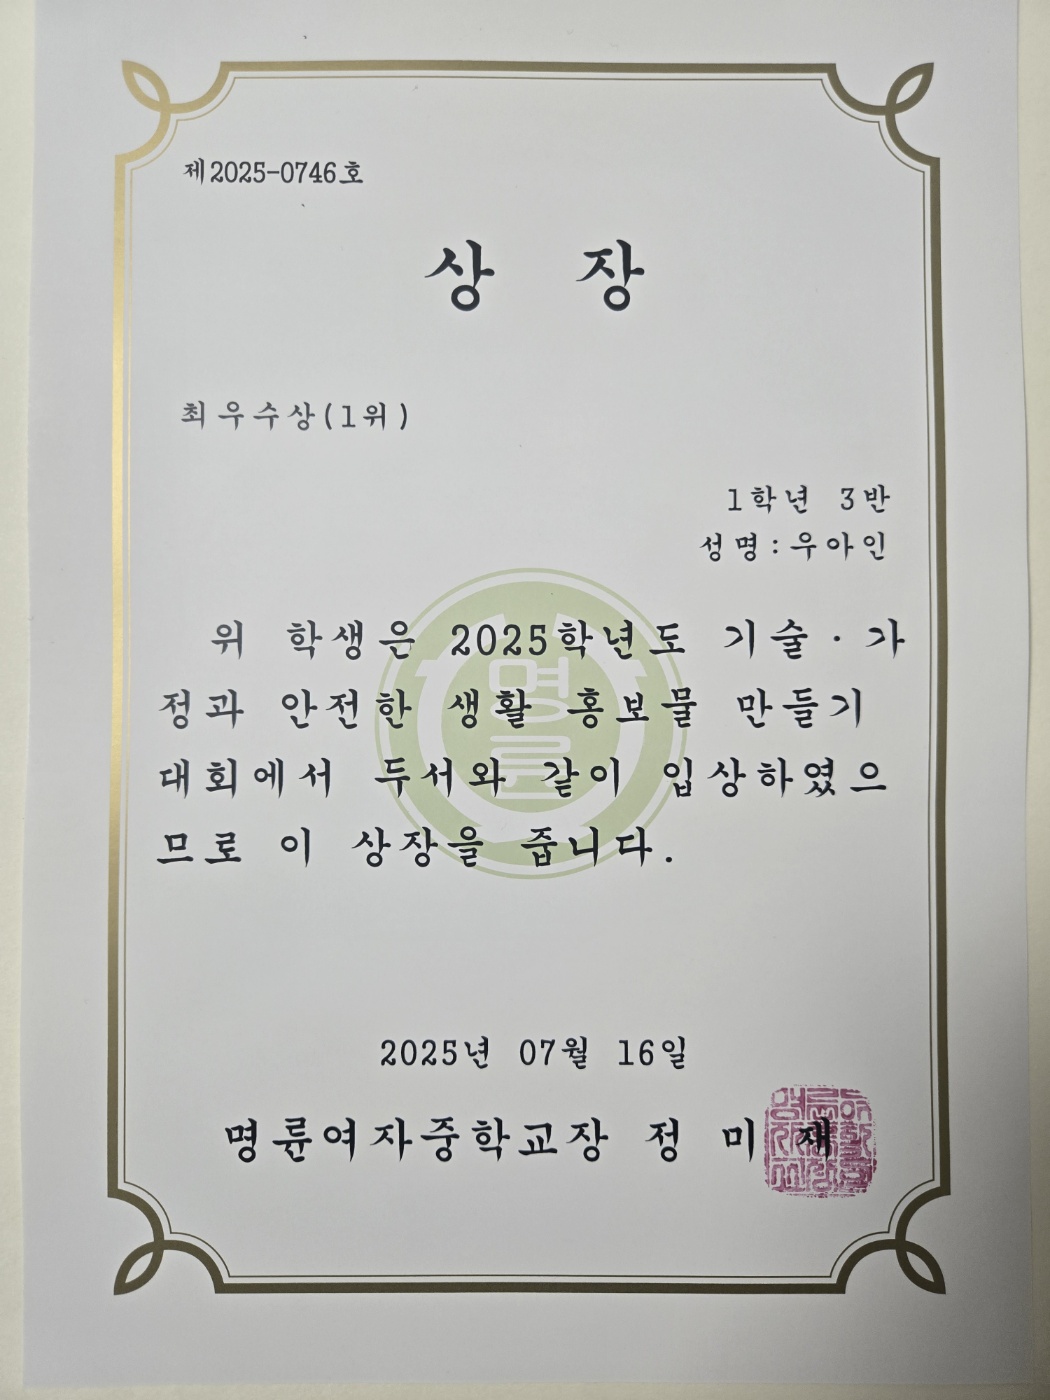 제2025-0746호
상 장
최우수상(1위)
1학년 3반
성명:우아인
위 학생은 2025학년도 기술·가
정과 안전한 생활 홍보물 만들기
대회에서 두서와 같이 입상하였으
므로 이 상장을 줍니다.
명륜
2025년 07월 16일
명륜여자중학교장 정 미 재